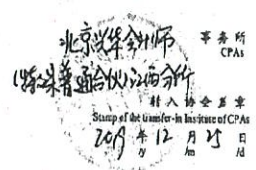 北京兴华会计师 事务所
CPAs
(特殊普通合伙)江西分所
转入协会盖章
Stamp of the transfer-in Institute of CPAs
2019 年 12 月 25 日
/y /m /d